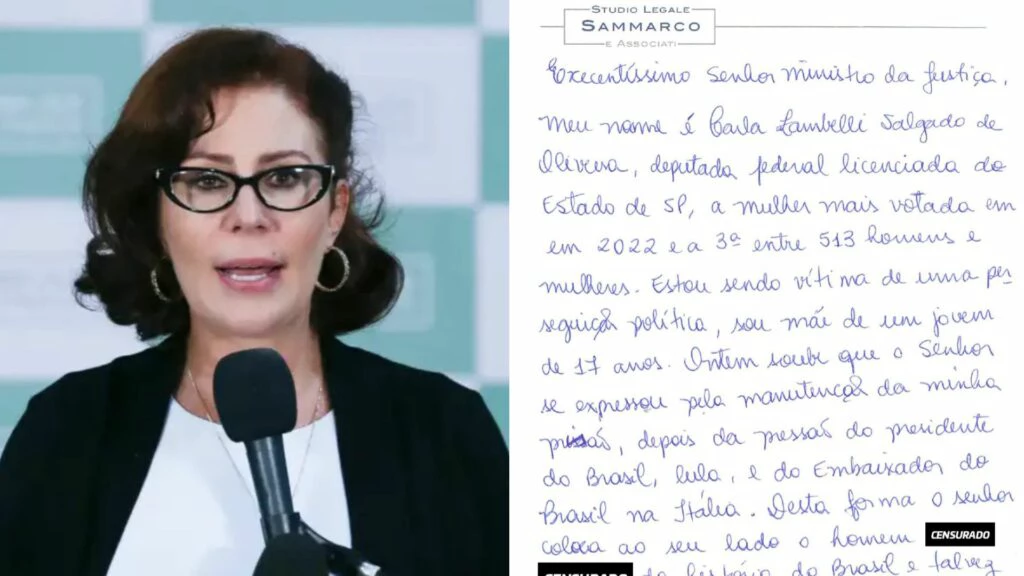 STUDIO LEGALE
SAMMARCO
E ASSOCIATI
Execentíssimo Senhor ministro da Justiça,
meu nome é Carla Zambelli Salgado de
Oliveira, deputada federal licenciada do
Estado de SP, a mulher mais votada em
em 2022 e a 3ª entre 513 homens e
mulheres. Estou sendo vítima de uma per
seguição política, sou mãe de um jovem
de 17 anos. Ontem soube que o Senhor
se expressou pela manutenção da minha
prisão, depois da pressão do presidente
do Brasil, Lula, e do Embaixador do
Brasil na Itália. Desta forma o senhor
coloca ao seu lado o homem CENSURADO
CENSURADO da história do Brasil e talvez